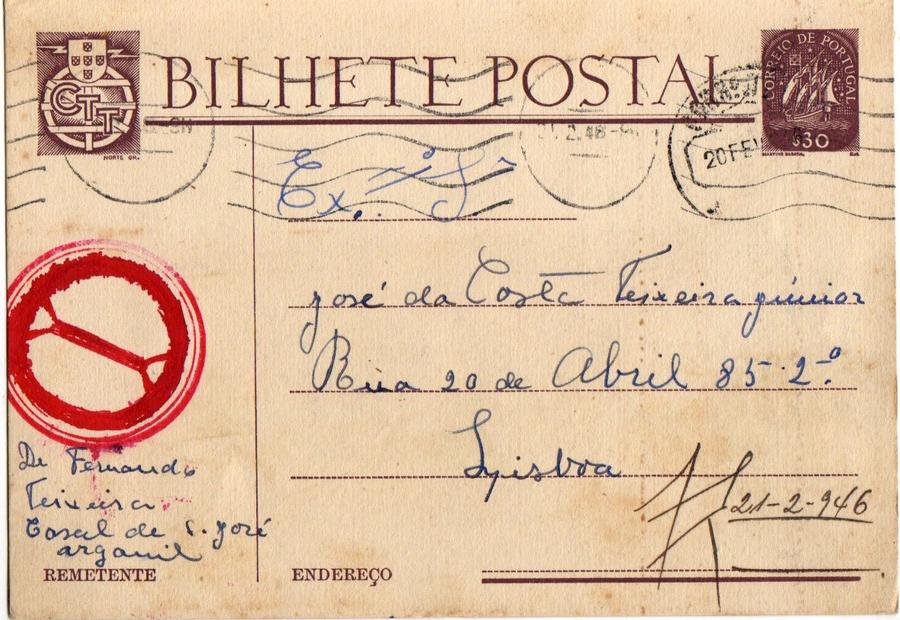 CTT
BILHETE POSTAL
CORREIO DE PORTUGAL
$30
NORTE GR.
20 FEV
Ex.mo Sr.
José da Costa Teixeira Júnior
Rua 20 de Abril 85-2.º
Lisboa
De Fernando
Teixeira
Casal de S. José
arganil
21-2-946
REMETENTE
ENDEREÇO